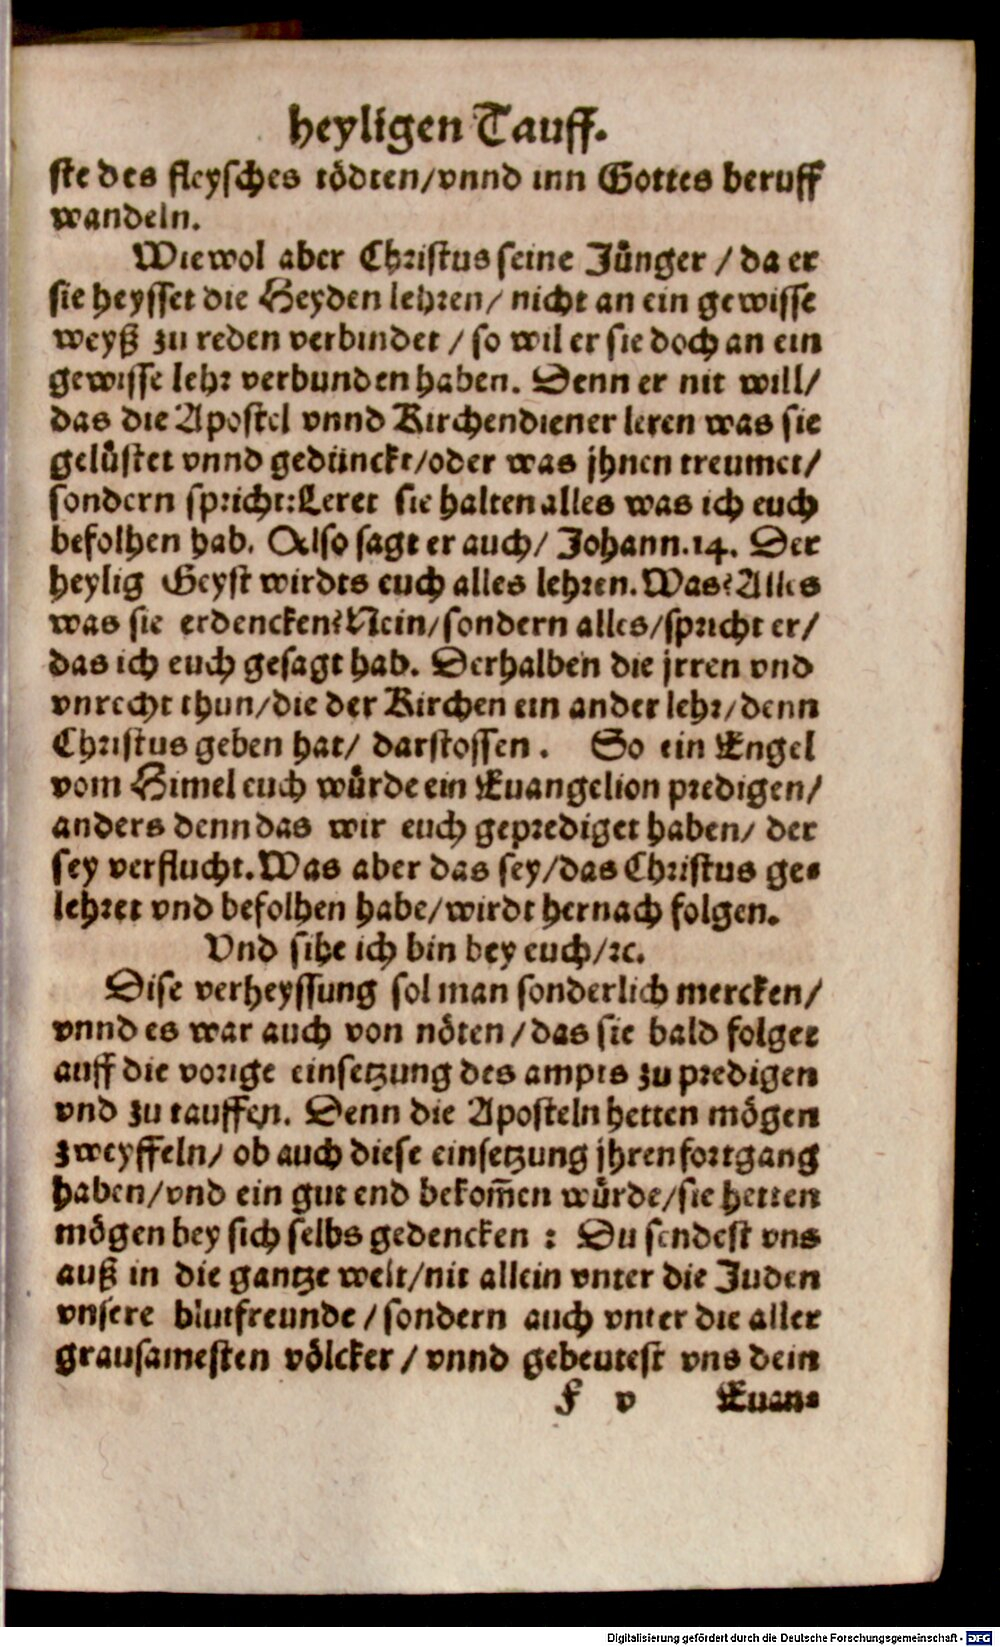 heyligen Tauff.
ste des fleysches tödten/vnnd inn Gottes beruff
wandeln.
Wiewol aber Christus seine Jünger / da er
sie heysset die Heyden lehren/ nicht an ein gewisse
weyß zu reden verbindet / so wil er sie doch an ein
gewisse lehr verbunden haben. Denn er nit will/
das die Apostel vnnd Kirchendiener leren was sie
gelüstet vnnd gedünckt/oder was jhnen treumet/
sondern spricht:Leret sie halten alles was ich euch
befolhen hab. Also sagt er auch/ Johann.14. Der
heylig Geyst wirdts euch alles lehren. Was? Alles
was sie erdencken? Nein/sondern alles/spricht er/
das ich euch gesagt hab. Derhalben die jrren vnd
vnrecht thun/die der Kirchen ein ander lehr/denn
Christus geben hat/ darstossen. So ein Engel
vom Himel euch würde ein Euangelion predigen/
anders denn das wir euch geprediget haben/ der
sey verflucht. Was aber das sey/das Christus ge-
lehret vnd befolhen habe/wirdt hernach folgen.
Vnd sihe ich bin bey euch/ꝛc.
Dise verheyssung sol man sonderlich mercken/
vnnd es war auch von nöten/das sie bald folget
auff die vorige einsetzung des ampts zu predigen
vnd zu tauffen. Denn die Aposteln hetten mögen
zweyffeln/ ob auch diese einsetzung jhren fortgang
haben/vnd ein gut end bekom̄en würde/sie hetten
mögen bey sich selbs gedencken : Du sendest vns
auß in die gantze welt/nit allein vnter die Juden
vnsere blutfreunde/sondern auch vnter die aller
grausamesten völcker / vnnd gebeutest vns dein
f v Euan-
Digitalisierung gefördert durch die Deutsche Forschungsgemeinschaft - DFG